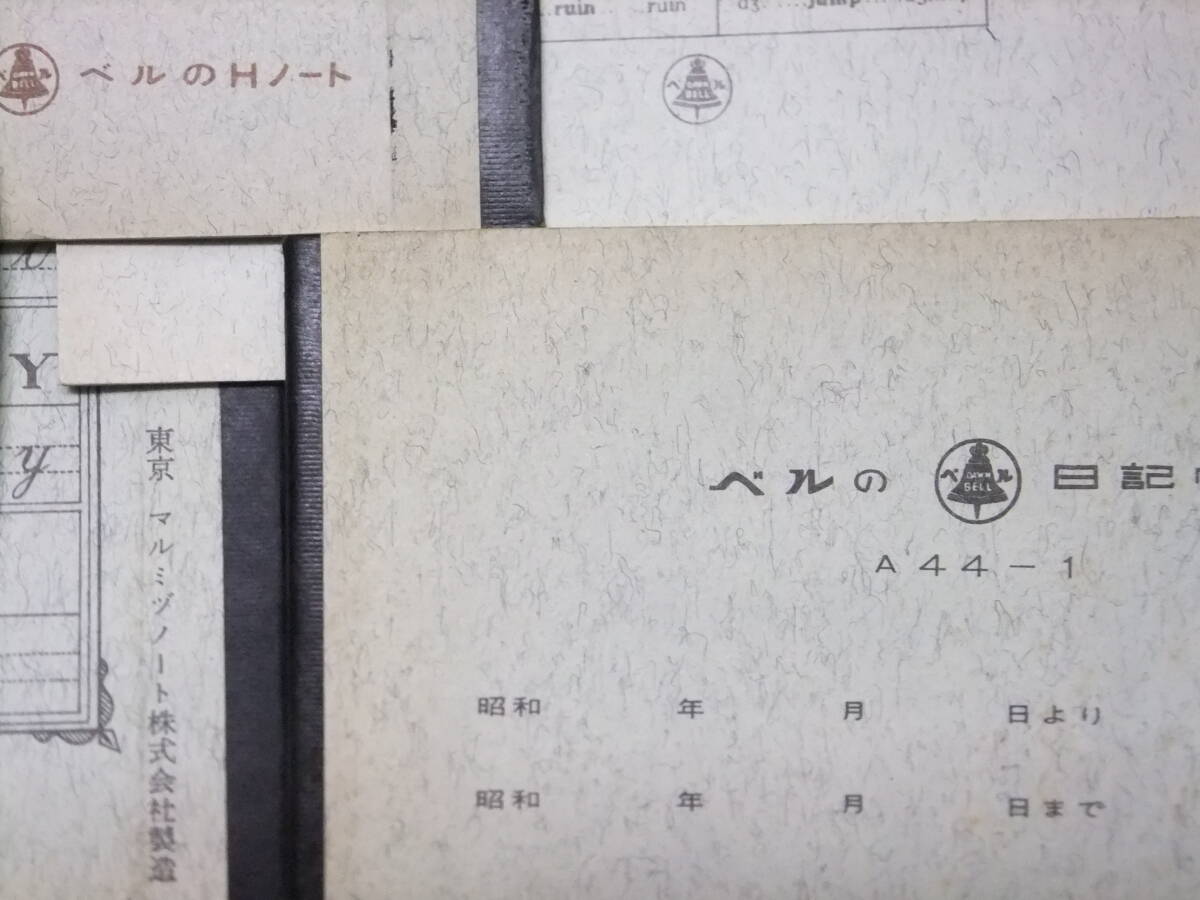 ベル
BELL
ベルのHノート
ruin ruin
jump
ベル
DAWN
BELL
Y
y
東京 マルミヅノート株式会社製造
ベルの
ベル
DAWN
BELL
日記
A44-1
昭和 年 月 日より
昭和 年 月 日まで